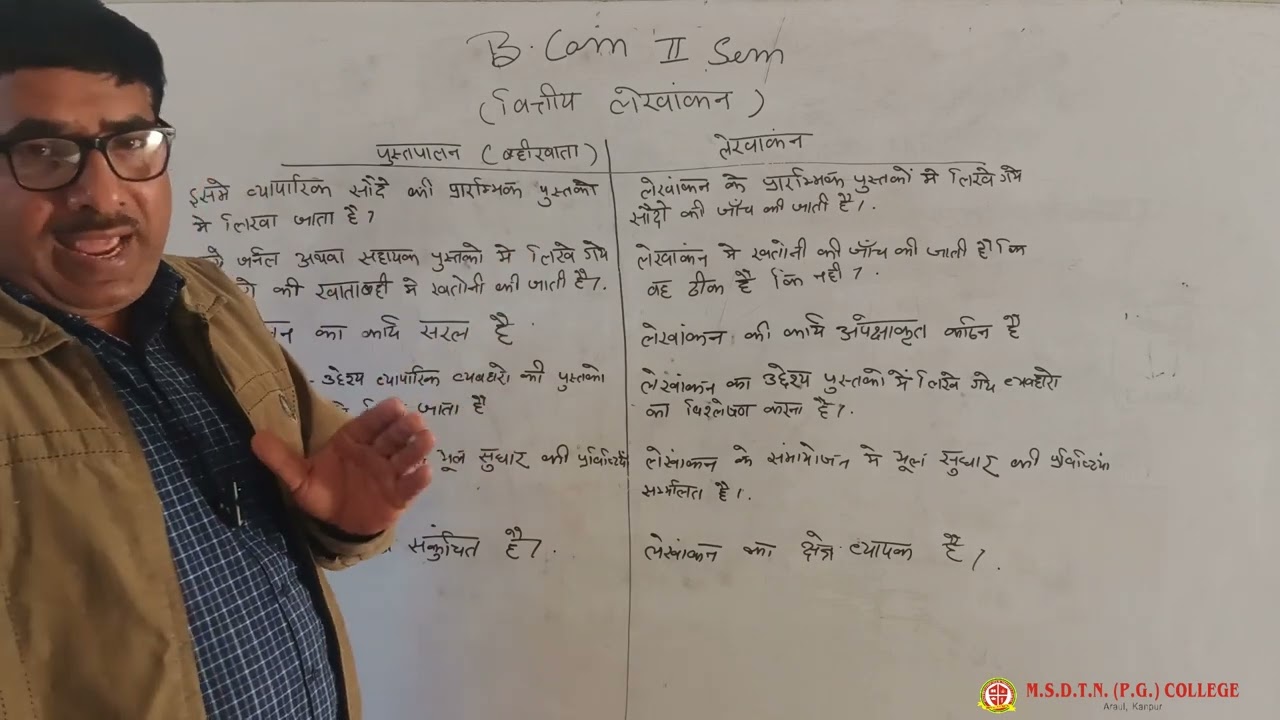 B. Com II Sem
(वित्तीय लेखांकन)
पुस्तपालन (बहीखाता)
लेखांकन
इसमे व्यापारिक सौदे की प्रारम्भिक पुस्तको
मे लिखा जाता है।
जर्नल अथवा सहायक पुस्तको मे लिखे गये
की खाताबही मे खतोनी की जाती है।.
का कार्य सरल है.
उद्देश्य व्यापारिक व्यवहारो की पुस्तको
जाता है
भूल सुधार की प्रविष्टियाँ
संकुचित है।.
लेखांकन के प्रारम्भिक पुस्तकों मे लिखे गये
सौदो की जाँच की जाती है।.
लेखांकन मे खतोनी की जाँच की जाती है। कि
वह ठीक है कि नही ?.
लेखांकन की कार्य अपेक्षाकृत कठिन है
लेखांकन का उद्देश्य पुस्तको में लिखे गये व्यवहारो
का विश्लेषण करना है।.
लेखांकन के समायोजन मे भूल सुधार की
है।.
लेखांकन का क्षेत्र व्यापक है।.
M.S.D.T.N. (P.G.) COLLEGE
Araul, Kanpur